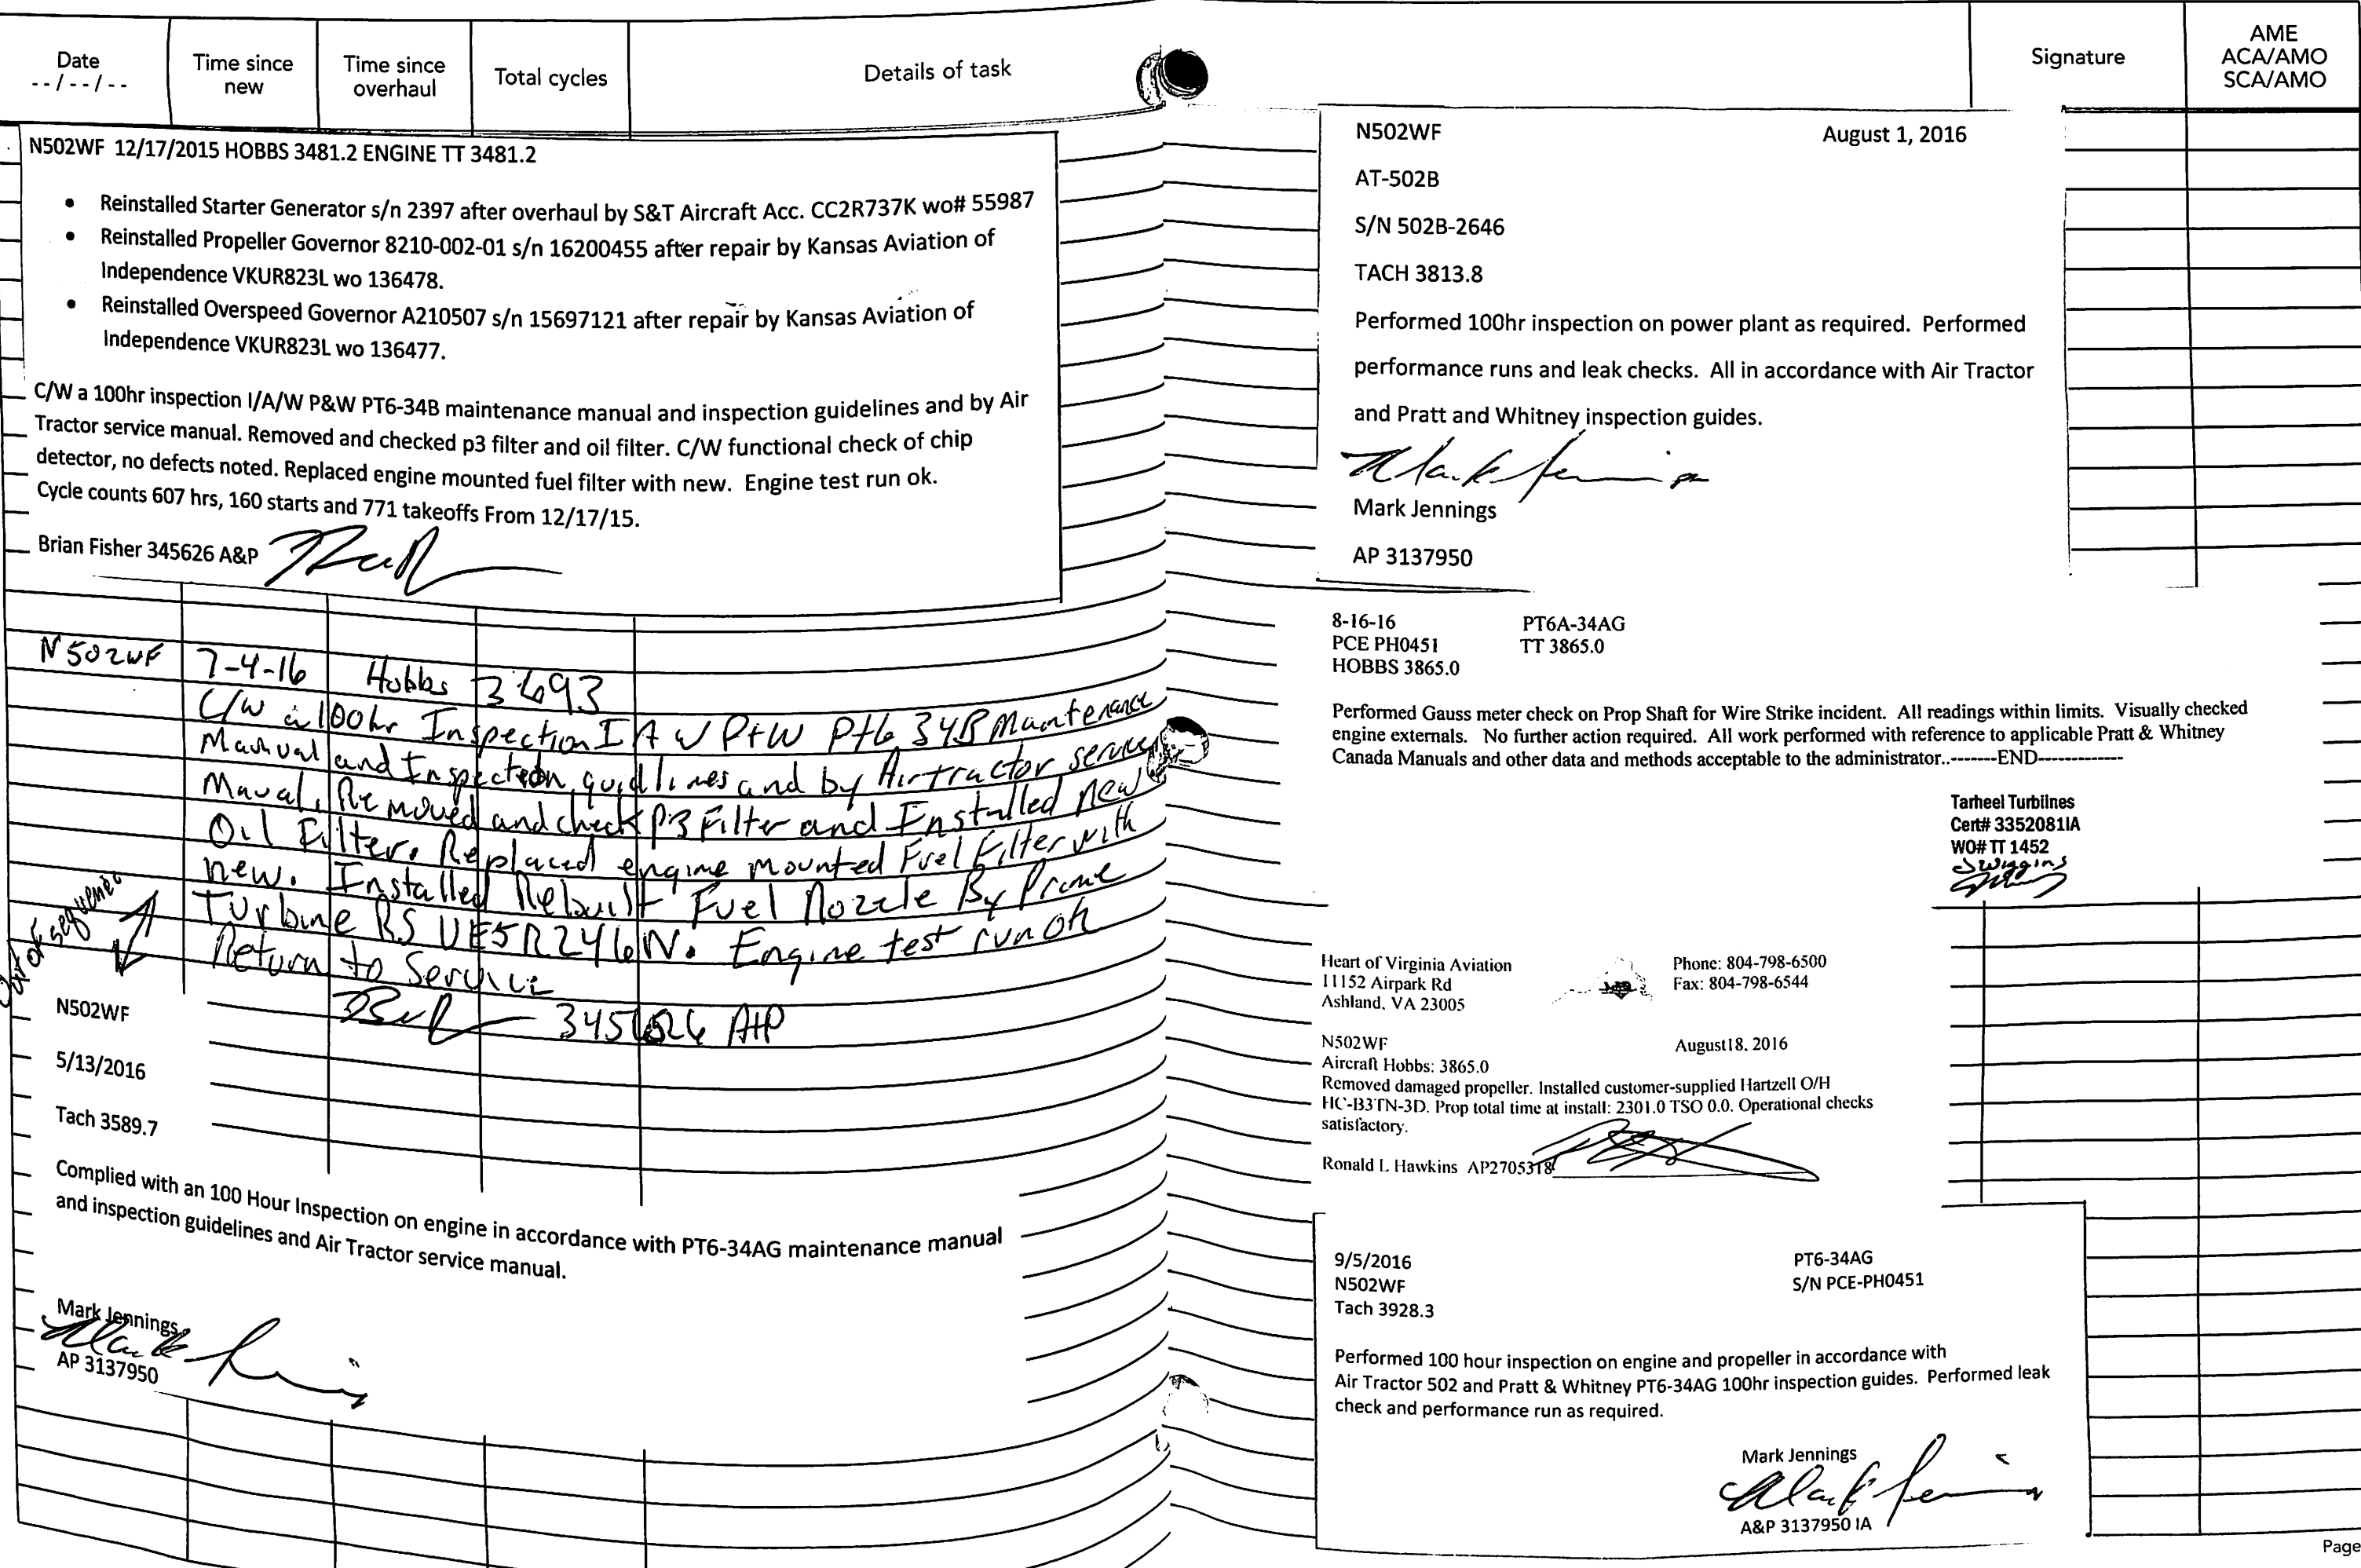 Date
--/--/--
Time since
new
Time since
overhaul
Total cycles
Details of task
Signature
AME
ACA/AMO
SCA/AMO
N502WF 12/17/2015 HOBBS 3481.2 ENGINE TT 3481.2
• Reinstalled Starter Generator s/n 2397 after overhaul by S&T Aircraft Acc. CC2R737K wo# 55987
• Reinstalled Propeller Governor 8210-002-01 s/n 16200455 after repair by Kansas Aviation of
Independence VKUR823L wo 136478.
• Reinstalled Overspeed Governor A210507 s/n 15697121 after repair by Kansas Aviation of
Independence VKUR823L wo 136477.
C/W a 100hr inspection I/A/W P&W PT6-34B maintenance manual and inspection guidelines and by Air
Tractor service manual. Removed and checked p3 filter and oil filter. C/W functional check of chip
detector, no defects noted. Replaced engine mounted fuel filter with new. Engine test run ok.
Cycle counts 607 hrs, 160 starts and 771 takeoffs From 12/17/15.
Brian Fisher 345626 A&P
N502WF 7-4-16 Hobbs 3693
C/W a 100hr Inspection I A W P+W Pt6 34B Maintenance
Manual and Inspection guidlines and by Airtractor service
Maual. Removed and check P3 Filter and Installed new
Oil Filter. Replaced engine mounted Fuel Filter with
new. Installed Rebuilt Fuel Nozzle By Prime
Turbine RS UE5R246N. Engine test run ok
Return to Service
345626 A+P
Out of sequence
N502WF
5/13/2016
Tach 3589.7
Complied with an 100 Hour Inspection on engine in accordance with PT6-34AG maintenance manual
and inspection guidelines and Air Tractor service manual.
Mark Jennings
AP 3137950
N502WF August 1, 2016
AT-502B
S/N 502B-2646
TACH 3813.8
Performed 100hr inspection on power plant as required. Performed
performance runs and leak checks. All in accordance with Air Tractor
and Pratt and Whitney inspection guides.
Mark Jennings
Mark Jennings
AP 3137950
8-16-16 PT6A-34AG
PCE PH0451 TT 3865.0
HOBBS 3865.0
Performed Gauss meter check on Prop Shaft for Wire Strike incident. All readings within limits. Visually checked
engine externals. No further action required. All work performed with reference to applicable Pratt & Whitney
Canada Manuals and other data and methods acceptable to the administrator..-------END-------------
Tarheel Turbilnes
Cert# 3352081IA
WO# TT 1452
J Wiggins
Heart of Virginia Aviation Phone: 804-798-6500
11152 Airpark Rd Fax: 804-798-6544
Ashland, VA 23005
N502WF August18, 2016
Aircraft Hobbs: 3865.0
Removed damaged propeller. Installed customer-supplied Hartzell O/H
HC-B3TN-3D. Prop total time at install: 2301.0 TSO 0.0. Operational checks
satisfactory.
Ronald L Hawkins AP2705318
9/5/2016 PT6-34AG
N502WF S/N PCE-PH0451
Tach 3928.3
Performed 100 hour inspection on engine and propeller in accordance with
Air Tractor 502 and Pratt & Whitney PT6-34AG 100hr inspection guides. Performed leak
check and performance run as required.
Mark Jennings
Mark Jennings
A&P 3137950 IA
Page